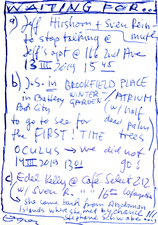 WAITING FOR...
a) Jeff Hirshorn + Sven Rein-
muth
to stop talking @
Jeff's apt @ 166 2nd Ave
13 III 2019 15 45
b) J.S. in BROOKFIELD PLACE
WINTER (ATRIUM
in Battery GARDEN
Park City (w/ half
to go to see for dead palms
the FIRST! TIME trees
OCULUS → we did not
14 III 2019 1301 go!
c) Edel Kelly @ Café Select 212
w/ Sven " " " 16th Lafayette
she came back from Andaman
Islands where she met by chance !!!
Stephane Schwabe...